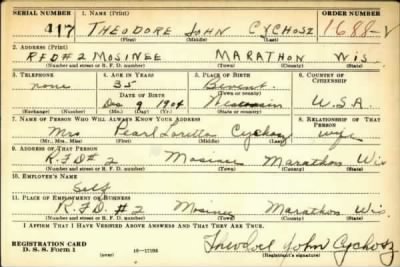 SERIAL NUMBER 1. NAME (Print) ORDER NUMBER
417 THEODORE JOHN CYCHOSZ 1688-V
(First) (Middle) (Last)
2. ADDRESS (Print)
RFD#2 MOSINEE MARATHON WIS
(Number and street or R. F. D. number) (Town) (County) (State)
3. TELEPHONE 4. AGE IN YEARS 5. PLACE OF BIRTH 6. COUNTRY OF CITIZENSHIP
none 35 Bevent
DATE OF BIRTH (Town or county)
Dec 9 1904 Wisconsin U.S.A.
(Exchange) (Number) (Mo.) (Day) (Yr.) (State or country)
7. NAME OF PERSON WHO WILL ALWAYS KNOW YOUR ADDRESS 8. RELATIONSHIP OF THAT PERSON
Mrs Pearl Loretta Cychosz wife
(Mr., Mrs., Miss) (First) (Middle) (Last)
9. ADDRESS OF THAT PERSON
R.F.D# 2 Mosinee Marathon Wis
(Number and street or R. F. D. number) (Town) (County) (State)
10. EMPLOYER'S NAME
Self
11. PLACE OF EMPLOYMENT OR BUSINESS
R.F.D. #2 Mosinee Marathon Wis.
(Number and street or R. F. D. number) (Town) (County) (State)
I AFFIRM THAT I HAVE VERIFIED ABOVE ANSWERS AND THAT THEY ARE TRUE.
REGISTRATION CARD
D. S. S. Form 1 (over) 16-17105 Theodore John Cychosz
(Registrant's signature)